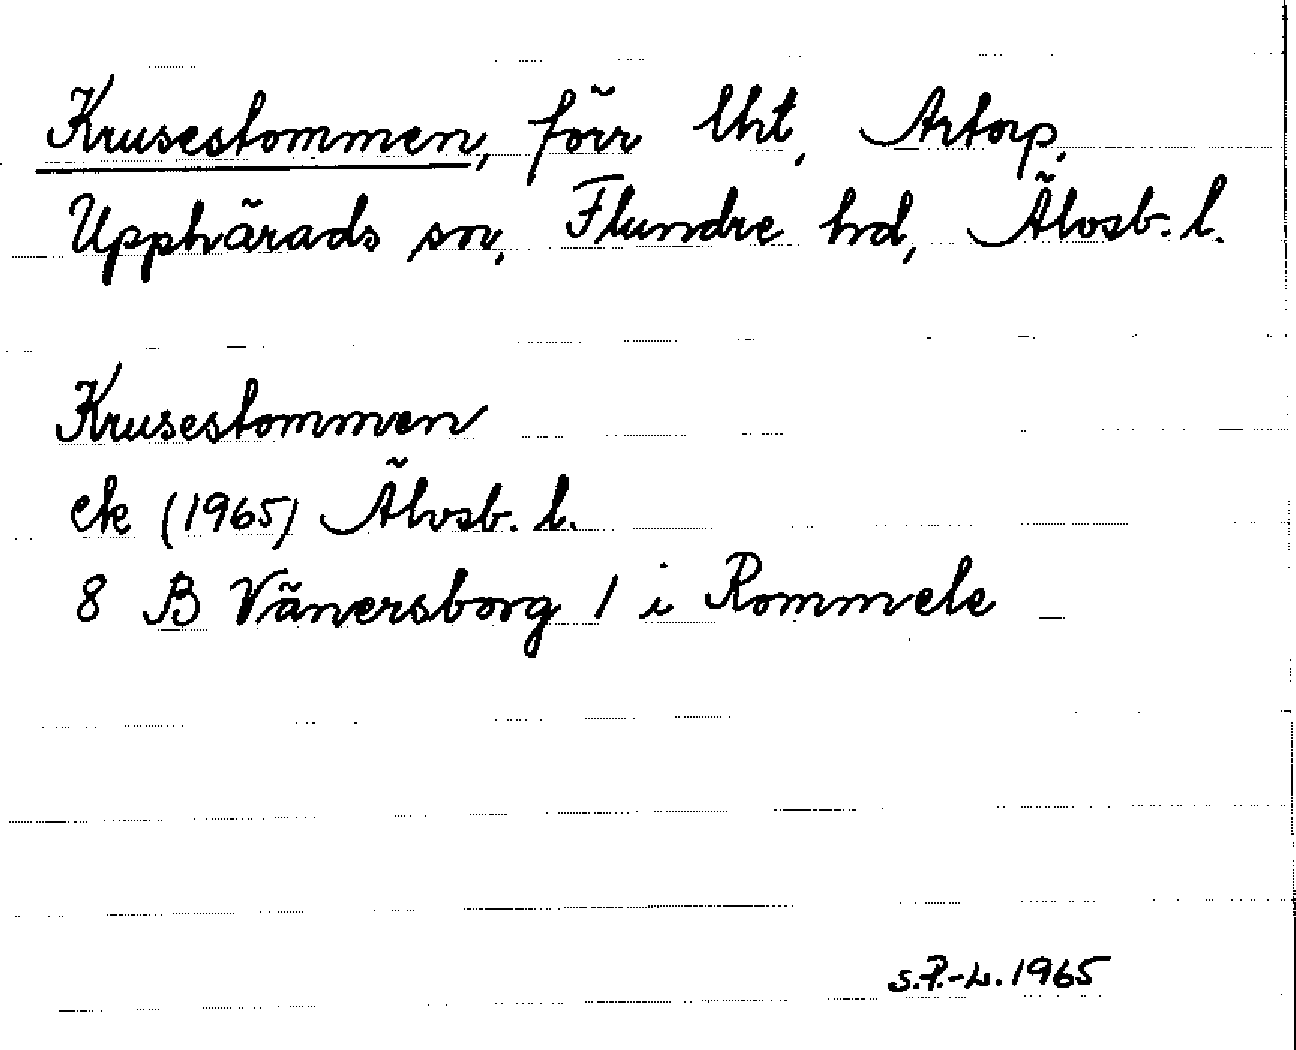 Krusestommen, förr lht, Artorp,
Upphärads sn, Flundre hd, Älvsb. l.
Krusestommen
ek (1965) Älvsb. l.
8 B Vänersborg 1 i Rommele
S.P.-L. 1965